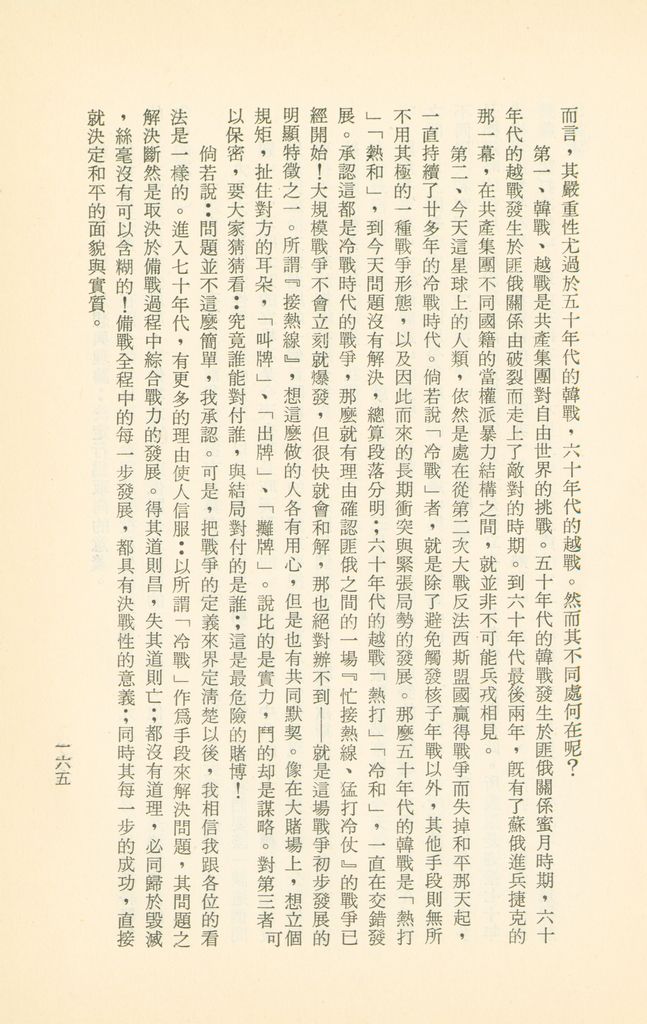 而言，其嚴重性尤過於五十年代的韓戰，六十年代的越戰。然而其不同處何在呢？
第一、韓戰、越戰是共產集團對自由世界的挑戰。五十年代的韓戰發生於匪俄關係蜜月時期，六十
年代的越戰發生於匪俄關係由破裂而走上了敵對的時期。到六十年代最後兩年，既有了蘇俄進兵捷克的
那一幕，在共產集團不同國籍的當權派暴力結構之間，就並非不可能兵戎相見。
第二、今天這星球上的人類，依然是處在從第二次大戰反法西斯盟國贏得戰爭而失掉和平那天起，
一直持續了廿多年的冷戰時代。倘若說「冷戰」者，就是除了避免觸發核子年戰以外，其他手段則無所
不用其極的一種戰爭形態，以及因此而來的長期衝突與緊張局勢的發展。那麼五十年代的韓戰是「熱打
」「熱和」，到今天問題沒有解決，總算段落分明；六十年代的越戰「熱打」「冷和」，一直在交錯發
展。承認這都是冷戰時代的戰爭，那麼就有理由確認匪俄之間的一場『忙接熱線、猛打冷仗』的戰爭已
經開始！大規模戰爭不會立刻就爆發，但很快就會和解，那也絕對辦不到——就是這場戰爭初步發展的
明顯特徵之一。所謂『接熱線』，想這麼做的人各有用心，但是也有共同默契。像在大賭場上，想立個
規矩，扯住對方的耳朵，「叫牌」、「出牌」、「攤牌」。說比的是實力，鬥的却是謀略。對第三者可
以保密，要大家猜猜看：究竟誰能對付誰，與結局對付的是誰；這是最危險的賭博！
倘若說：問題並不這麼簡單，我承認。可是，把戰爭的定義來界定清楚以後，我相信我跟各位的看
法是一樣的。進入七十年代，有更多的理由使人信服：以所謂「冷戰」作爲手段來解決問題，其問題之
解決斷然是取決於備戰過程中綜合戰力的發展。得其道則昌，失其道則亡；都沒有道理，必同歸於毀滅
，絲毫沒有可以含糊的！備戰全程中的每一步發展，都具有決戰性的意義；同時其每一步的成功，直接
就決定和平的面貌與實質。
一六五